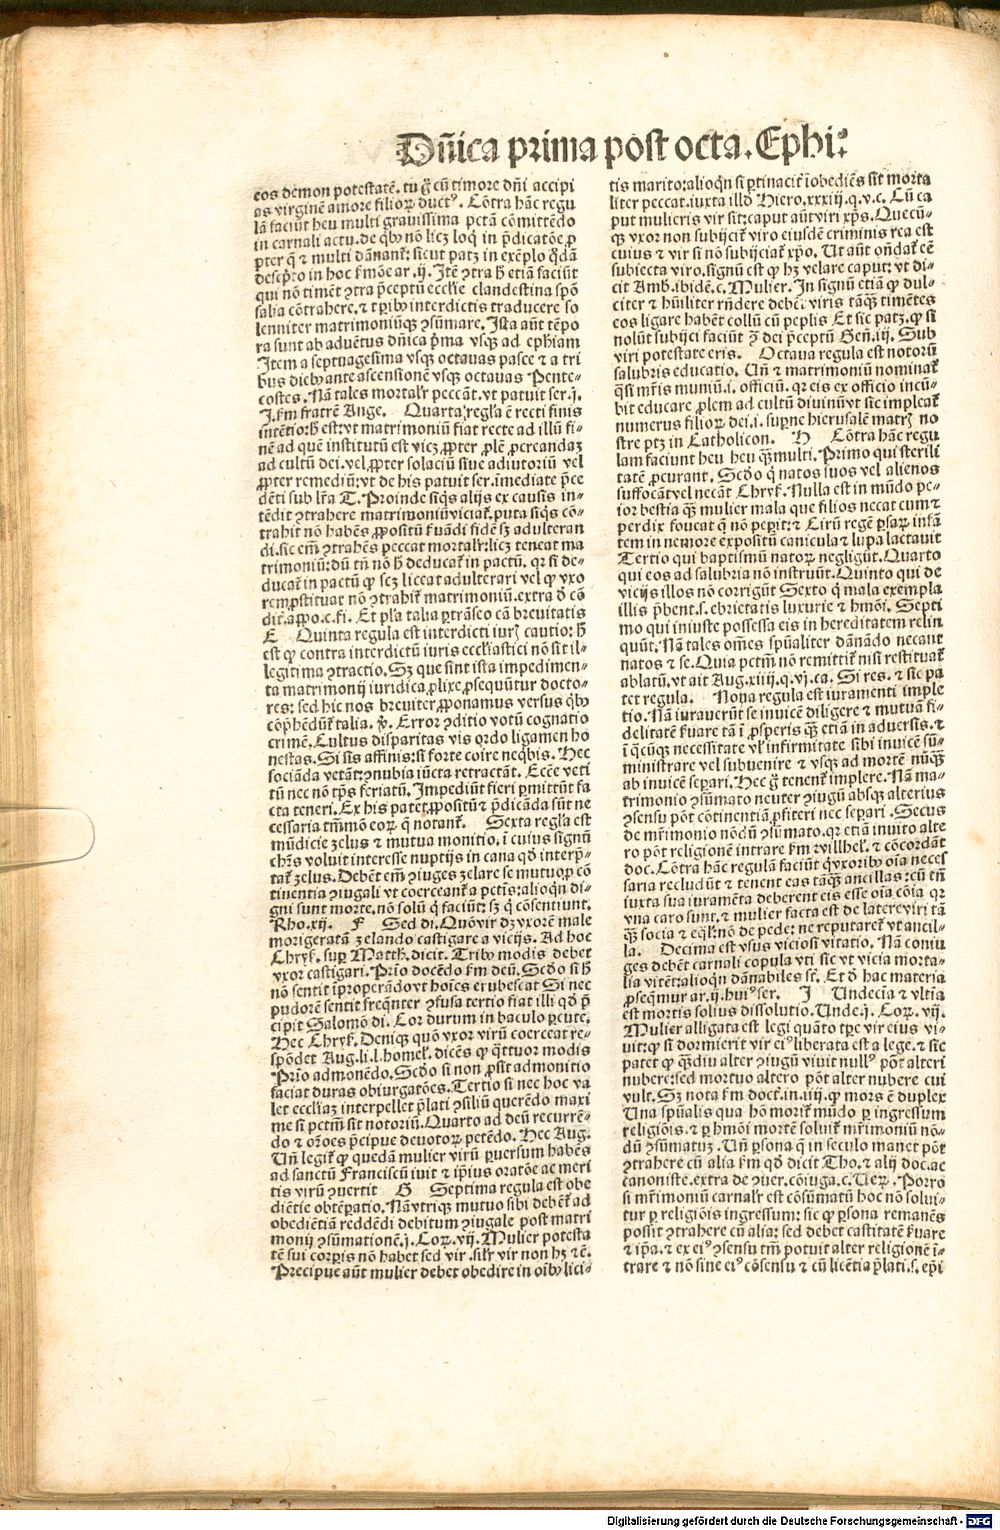 Dñica prima post octa. Ephi.
eos demon potestatē. tu g̃ cū timore dñi accipi
as virginē amore filioꝝ ductꝰ. Cōtra hāc regu
lā faciūt heu multi grauissima pctā cōmittēdo
in carnali actu. de qͥbꝫ nō licꝫ loq̃ in p̄dicatōe ꝓ
pter q̄ ⁊ multi dānant᷑: sicut patꝫ in exēplo q̄dā
descp̄to in hoc ẜmōe ar. ij. Itē ꝯtra h̄ etiā faciūt
qui nō timēt ꝯtra p̄ceptū ecclīe clandestina spō
salia cōtrahere. ⁊ tꝑibꝫ interdictis traducere so
lenniter matrimoniūqꝫ ꝯsūmare. Ista aūt tēpo
ra sunt ab aduētus dñica p̄ma vsqꝫ ad ephiam
Item a septuagesima vsqꝫ octauas pasce ⁊ a tri
bus diebꝫ ante ascensionē vsqꝫ octauas Pente-
costes. Nā tales mortalr̃ peccāt. vt patuit ser. j.
J. ẜm fratrē Ange. Quarta regl̃a ē recti finis
intētio: h̄ est: vt matrimoniū fiat recte ad illū fi-
nē ad quē institutū est vicꝫ. ꝓpter ꝓlē ꝓcreandaꝫ
ad cultū dei. vel ꝓpter solaciū siue adiutoriū vel
ꝓpter remediū: vt de his patuit ser. imediate p̄ce
dēti sub lr̃a T. Proinde siqͥs alijs ex causis in-
tēdit ꝯtrahere matrimoniū viciat᷑. puta siqͥs cō-
trahit nō habēs ꝓpositū ẜuādi fidē sꝫ adulteran
di. sic em̄ ꝯtrahēs peccat mortalr̃: licꝫ teneat ma
trimoniū: dū tn̄ nō h̄ deducat᷑ in pactū. qr si de-
ducat᷑ in pactū ꝙ scꝫ liceat adulterari vel ꝙ vxo
rem ꝓstituat nō ꝯtrahit᷑ matrimoniū. extra ď cō
dit. appo. c. fi. Et pl̃a talia ꝑtrāseo cā breuitatis
E Quinta regula est interdicti iurꝭ cautio: h̄
est ꝙ contra interdictū iuris eccl̃iastici nō sit il-
legitima ꝯtractio. Sꝫ que sint ista impedimen-
ta matrimonij iuridica ꝓlixe ꝓsequūtur docto-
res: sed hic nos breuiter ꝓponamus versus qͥbꝫ
cōp̄hēdūt᷑ talia. ℣. Error ꝯditio votū cognatio
crimē. Cultus disparitas vis ordo ligamen ho
nestas. Si sis affinis: si forte coire neqͥbis. Hec
socianda vetāt: ꝯnubia iūcta retractāt. Ecc̄e veti
tū nec nō tp̄s feriatū. Impediūt fieri ꝑmittūt fa
cta teneri. Ex his patet ꝓpositū ⁊ p̄dicāda sūt ne
cessaria tm̄mō eoꝝ q̄ notant᷑. Sexta regl̃a est
mūdicie ꝫelus ⁊ mutua monitio. ī cuius signū
chr̄s voluit interesse nuptijs in cana qď interp̄-
tat᷑ ꝫelus. Debēt em̄ ꝯiuges ꝫelare se mutuo ꝓ cō
tinentia ꝯiugali vt coerceant᷑ a pctīs: alioqn̄ di-
gni sunt morte. nō solū q̄ faciūt: sꝫ q̄ cōsentiunt.
Rho. xij. F Sed di. Quō vir dꝫ vxorē male
morigeratā ꝫelando castigare a vicijs. Ad hoc
Chryẜ. suꝑ Matth. dicit. Tribꝫ modis debet
vxor castigari. Prīo docēdo ẜm deū. Scďo si h̄
nō sentit īproperādo vt hoīes erubescat Si nec
pudorē sentit freq̄nter ꝯfusa tertio fiat illi qď p̄
cipit Salomō di. Cor durum in baculo ꝑcute.
Hec Chryẜ. Denique quō vxor virū coerceat re-
spōdet Aug. li. l. homel᷑. dicēs ꝙ qͣttuor modis
Prīo admonēdo. Scďo si non ꝓsit admonitio
faciat duras obiurgatōes. Tertio si nec hoc va
let eccl̃iaꝫ interpellet p̄lati ꝯsiliū querēdo maxi
me si pctm̄ sit notoriū. Quarto ad deū recurrē-
do ⁊ orōes p̄cipue deuotoꝝ petēdo. Hec Aug.
Un̄ legit᷑ ꝙ quedā mulier virū ꝑuersum habēs
ad sanctū Franciscū iuit ⁊ ip̄ius oratōe ac meri
tis virū ꝯuertit G Septima regula est obe
diētie obtēꝑatio. Nā vtriqꝫ mutuo sibi debēt᷑ ad
obediētiā reddēdi debitum ꝯiugale post matri
monij ꝯsūmationē. j. Coꝝ. vij. Mulier potesta
tē sui corꝑis nō habet sed vir. silr̃ vir non hꝫ ⁊ē.
Precipue aūt mulier debet obedire in oībꝫ lici-
tis marito: alioqn̄ si ꝑtinacit᷑ īobediēs sit morta
liter peccat. iuxta illď Hiero. xxxiij. q. v. c. Cū ca
put mulieris vir sit: caput aūt viri xp̄s. Quecū-
qꝫ vxor non subijcit᷑ viro eiusdē criminis rea est
cuius ⁊ vir si nō subijciat᷑ xp̄o. Ut aūt oñdat᷑ eē
subiecta viro. signū est ꝙ hꝫ velare caput: vt di-
cit Amb. ibidē. c. Mulier. In signū etiā ꝙ dul-
citer ⁊ hūiliter rñdere debēt viris tāqꝫ timētes
eos ligare habēt collū cū peplis Et sic patꝫ. ꝙ si
nolūt subijci faciūt ꝯ̄ dei p̄ceptū Gen̄. iij. Sub
viri potestate eris. Octaua regula est notorū
salubris educatio. Un̄ ⁊ matrimoniū nominat᷑
q̃si mr̃is muniū. i. officiū. qr eis ex officio incū-
bit educare ꝓlem ad cultū diuinū vt sic impleat᷑
numerus filioꝝ dei. i. suꝑne hierusalē matrꝭ no
stre ptꝫ in Catholicon. H Cōtra hāc regu
lam faciunt heu heu q̄ꝫ multi. Primo qui sterili
tatē ꝓcurant. Scďo q̄ natos suos vel alienos
suffocāt vel necāt Chryẜ. Nulla est in mūdo pe-
ior bestia q̄ꝫ mulier mala que filios necat cum ⁊
perdix foueat q̄ nō peꝑit: ⁊ Cirū regē ꝑsaꝝ infā
tem in nemore expositū canicula ⁊ lupa lactauit
Tertio qui baptismū natoꝝ negligūt. Quarto
qui eos ad salubria nō instruūt. Quinto qui de
vicijs illos nō corrigūt Sexto q̄ mala exempla
illis p̄bent. s. ebrietatis luxurie ⁊ hmōi. Septi
mo qui iniuste possessa eis in hereditatem relin
quūt. Nā tales om̄es spūaliter dānādo necant
natos ⁊ se. Quia pctm̄ nō remittit᷑ nisi restituat᷑
ablatū. vt ait Aug. xiiij. q. vj. ca. Si res. ⁊ sic pa
tet regula. Nona regula est iuramenti imple
tio. Nā iurauerūt se inuicē diligere ⁊ mutuā fi-
delitatē ẜuare tā ī ꝓsperis q̄ꝫ etiā in aduersis. ⁊
ī q̄cūqꝫ necessitate vl᷑ infirmitate sibi inuicē sū-
ministrare vel subuenire ⁊ vsqꝫ ad mortē nūq̄ꝫ
ab inuicē seꝑari. Hec g̃ tenent᷑ implere. Nā ma-
trimonio ꝯsūmato neuter ꝯiugū absqꝫ alterius
ꝯsensu pōt cōtinentiā ꝓfiteri nec seꝑari. Secus
de mr̃imonio nōdū ꝯsūmato. qr etiā inuito alte
ro pōt religionē intrare ẜm rvillhel᷑. ⁊ cōcordāt
doc. Cōtra hāc regulā faciūt q̄ vxoribꝫ oīa neces
saria recludūt ⁊ tenent eas tāq̄ꝫ ancillas: cū tn̄
iuxta sua iuramēta deberent eis esse oīa cōia qr
vna caro sunt. ⁊ mulier facta est de latere viri tā
q̄ꝫ socia ⁊ eql᷑: nō de pede: ne reputaret᷑ vt ancil-
la. Decima est vsus viciosi vitatio. Nā coniu
ges debēt carnali copula vti sic vt vicia morta-
lia vitēt: alioqn̄ dānabiles st̄. Et ď hac materia
ꝓseqm̄ur ar. ij. huiꝰ ser. J Undecīa ⁊ vltīa
est mortis solius dissolutio. Unde. j. Coꝝ. vij.
Mulier alligata est legi quāto tp̄e vir eius vi-
uit: ꝙ si dormierit vir eiꝰ liberata est a lege. ⁊ sic
patet ꝙ q̄ꝫdiu alter ꝯiugū viuit nullꝰ pōt alteri
nubere: sed mortuo altero pōt alter nubere cui
vult. Sꝫ nota ẜm doct. in. iiij. ꝙ mors ē duplex
Una spūalis qua hō morit᷑ mūdo ꝑ ingressum
religiōis. ⁊ ꝑ hmōi mortē soluit᷑ mr̃imoniū nō-
dū ꝯsūmatuꝫ. Un̄ ꝑsona q̄ in seculo manet pōt
ꝯtrahere cū alia ẜm qď dicit Tho. ⁊ alij doc. ac
canoniste. extra de ꝯuer. cōiuga. c. Ueꝝ. Porro
si mr̃imoniū carnalr̃ est cōsūmatū hoc nō solui-
tur ꝑ religiōis ingressum: sic ꝙ ꝑsona remanēs
possit ꝯtrahere cū alia: sed debet castitatē ẜuare
⁊ ip̄a. ⁊ ex eiꝰ ꝯsensu tm̄ potuit alter religionē ī-
trare ⁊ nō sine eiꝰ cōsensu ⁊ cū licētia p̄lati. s. ep̄i
Digitalisierung gefördert durch die Deutsche Forschungsgemeinschaft - DFG